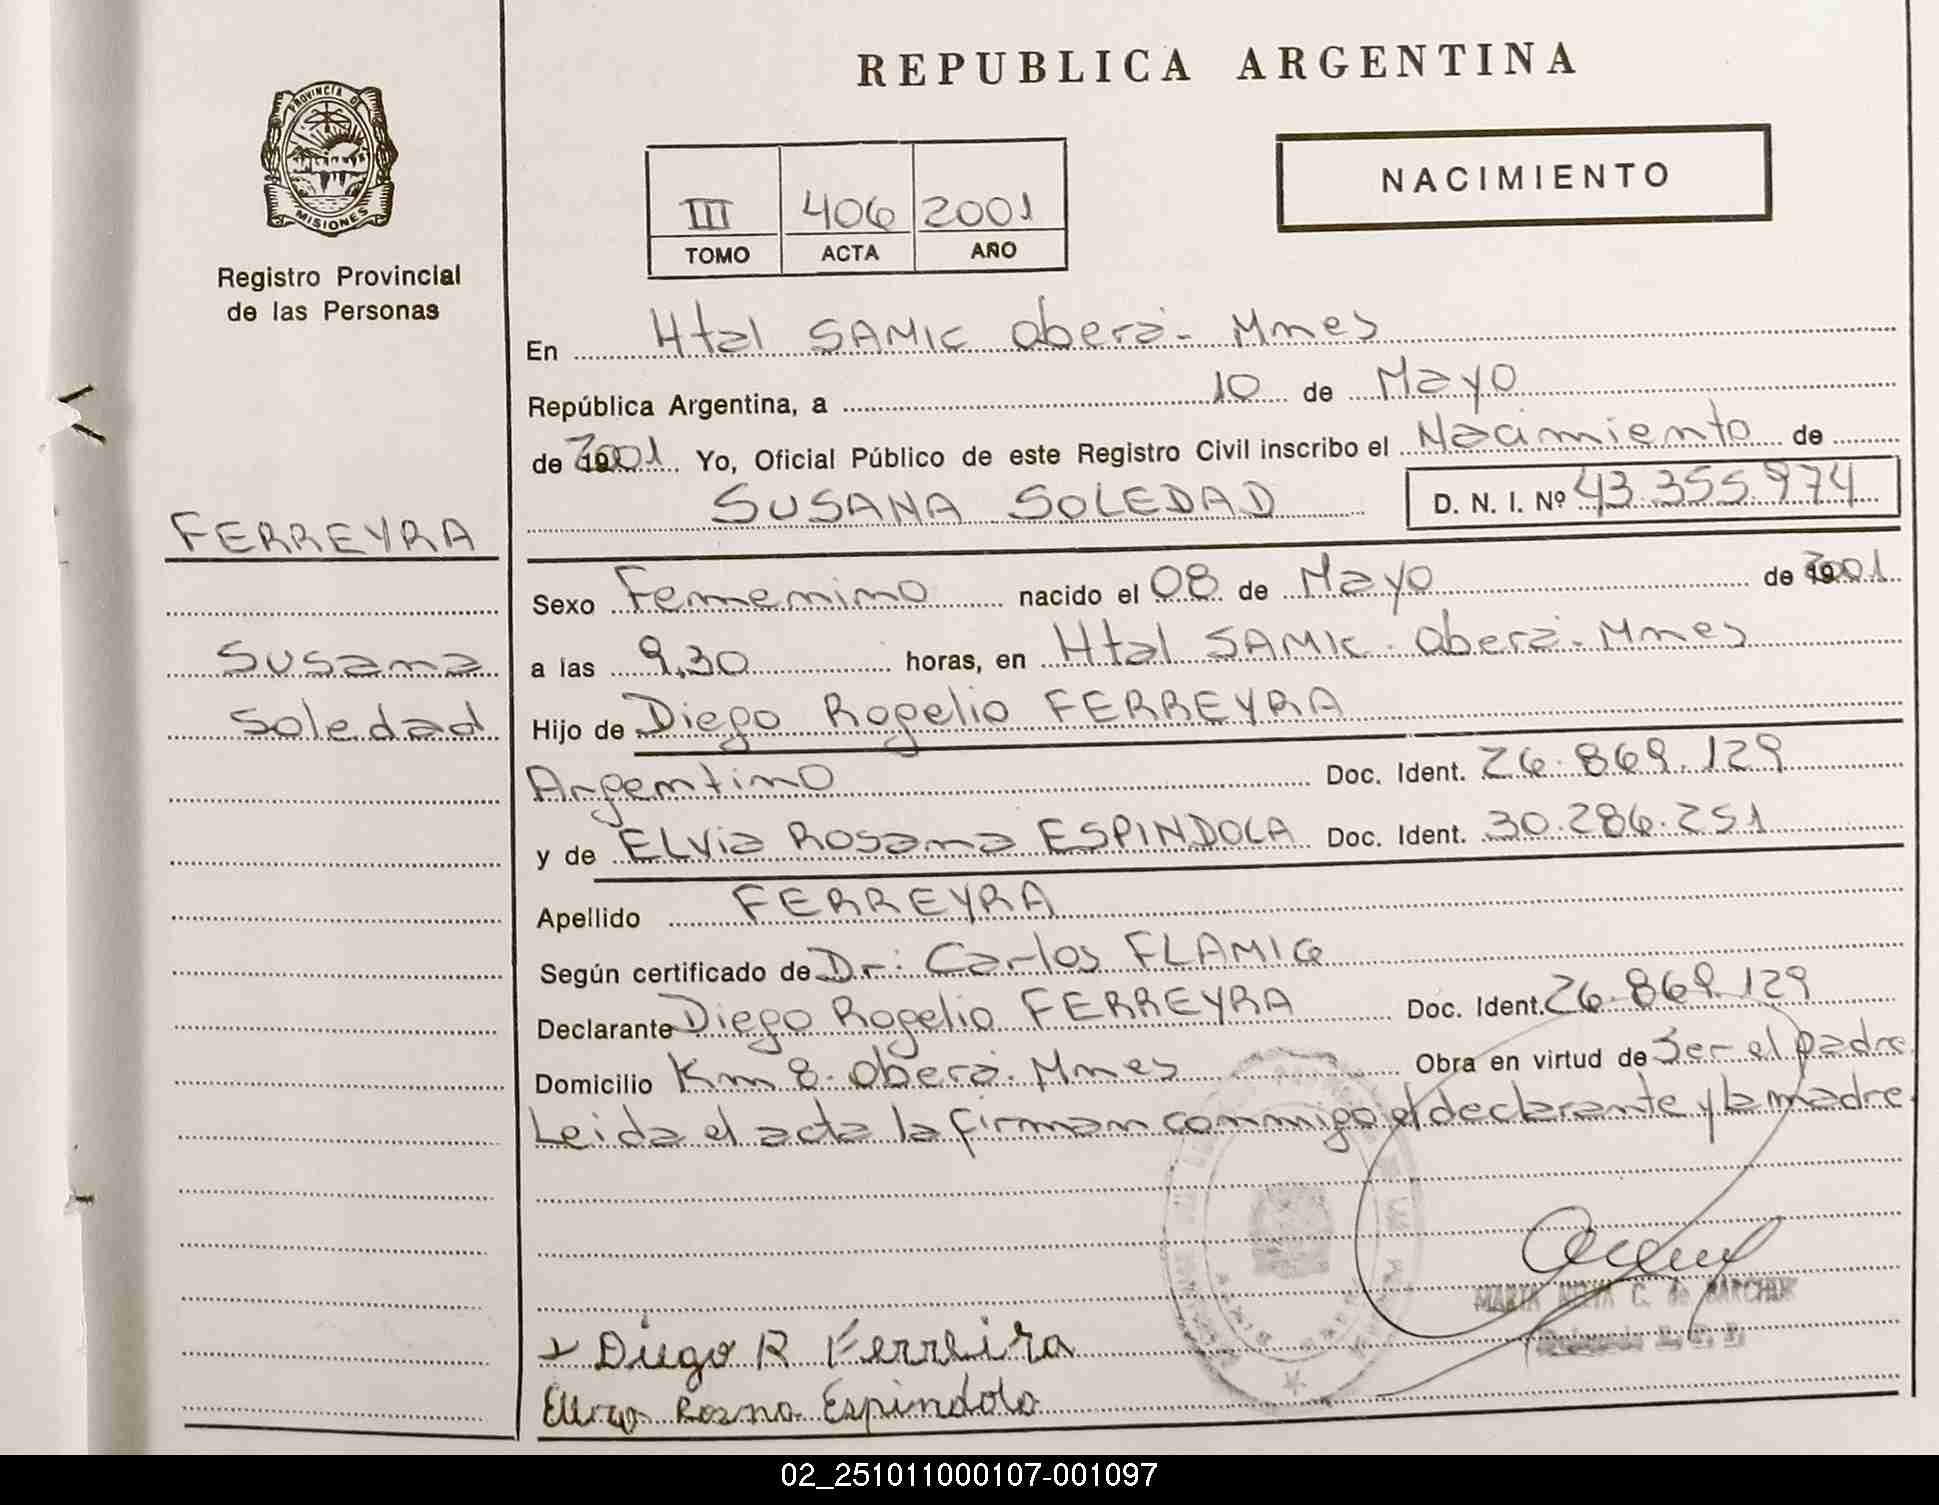 REPUBLICA ARGENTINA
PROVINCIA DE
MISIONES
Registro Provincial
de las Personas
NACIMIENTO
III 406 2001
TOMO ACTA AÑO
En Htal SAMIC Oberá - Mnes
República Argentina, a 10 de Mayo
de 2001 Yo, Oficial Público de este Registro Civil inscribo el Nacimiento de
SUSANA SOLEDAD D. N. I. Nº 43.355.974
FERREYRA
Susana
Soledad
Sexo Femenino nacido el 08 de Mayo de 2001
a las 9,30 horas, en Htal SAMIC - Oberá - Mnes
Hijo de Diego Rogelio FERREYRA
Argentino Doc. Ident. 26.869.129
y de ELVia Rosana ESPINDOLA Doc. Ident. 30.286.251
Apellido FERREYRA
Según certificado de Dr: Carlos FLAMIG
Declarante Diego Rogelio FERREYRA Doc. Ident. 26.869.129
Domicilio Km 8. Oberá. Mnes Obra en virtud de Ser el padre.
Leida el acta la firman conmigo el declarante y la madre.
MARTA C. de
Diego R Ferreira
Rosna Espindola
02_251011000107-001097